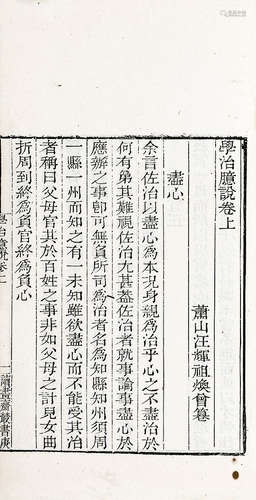 學治臆說卷上
蕭山汪輝祖煥曾纂
盡心
余言佐治以盡心為本況身親為治乎心之不盡治於
何有第其難視佐治尤甚葢佐治者就事論事盡心於
應辦之事卽可無負所司為治者名為知縣知州須周
一縣一州而知之有一未知雖欲盡心而不能受其治
者稱曰父母官其於百姓之事非如父母之計兒女曲
折周到終為負官終為負心
學治臆說卷上